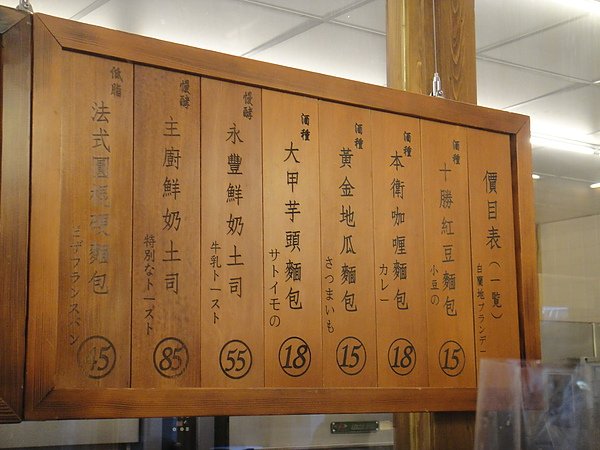 價目表(一覽)
白蘭地ブランデー
酒種
十勝紅豆麵包
小豆の
15
酒種
本衛咖喱麵包
カレー
18
酒種
黃金地瓜麵包
さつまいも
15
酒種
大甲芋頭麵包
サトイモの
18
慢酵
永豐鮮奶土司
牛乳トースト
55
慢酵
主廚鮮奶土司
特別なトースト
85
低脂
45